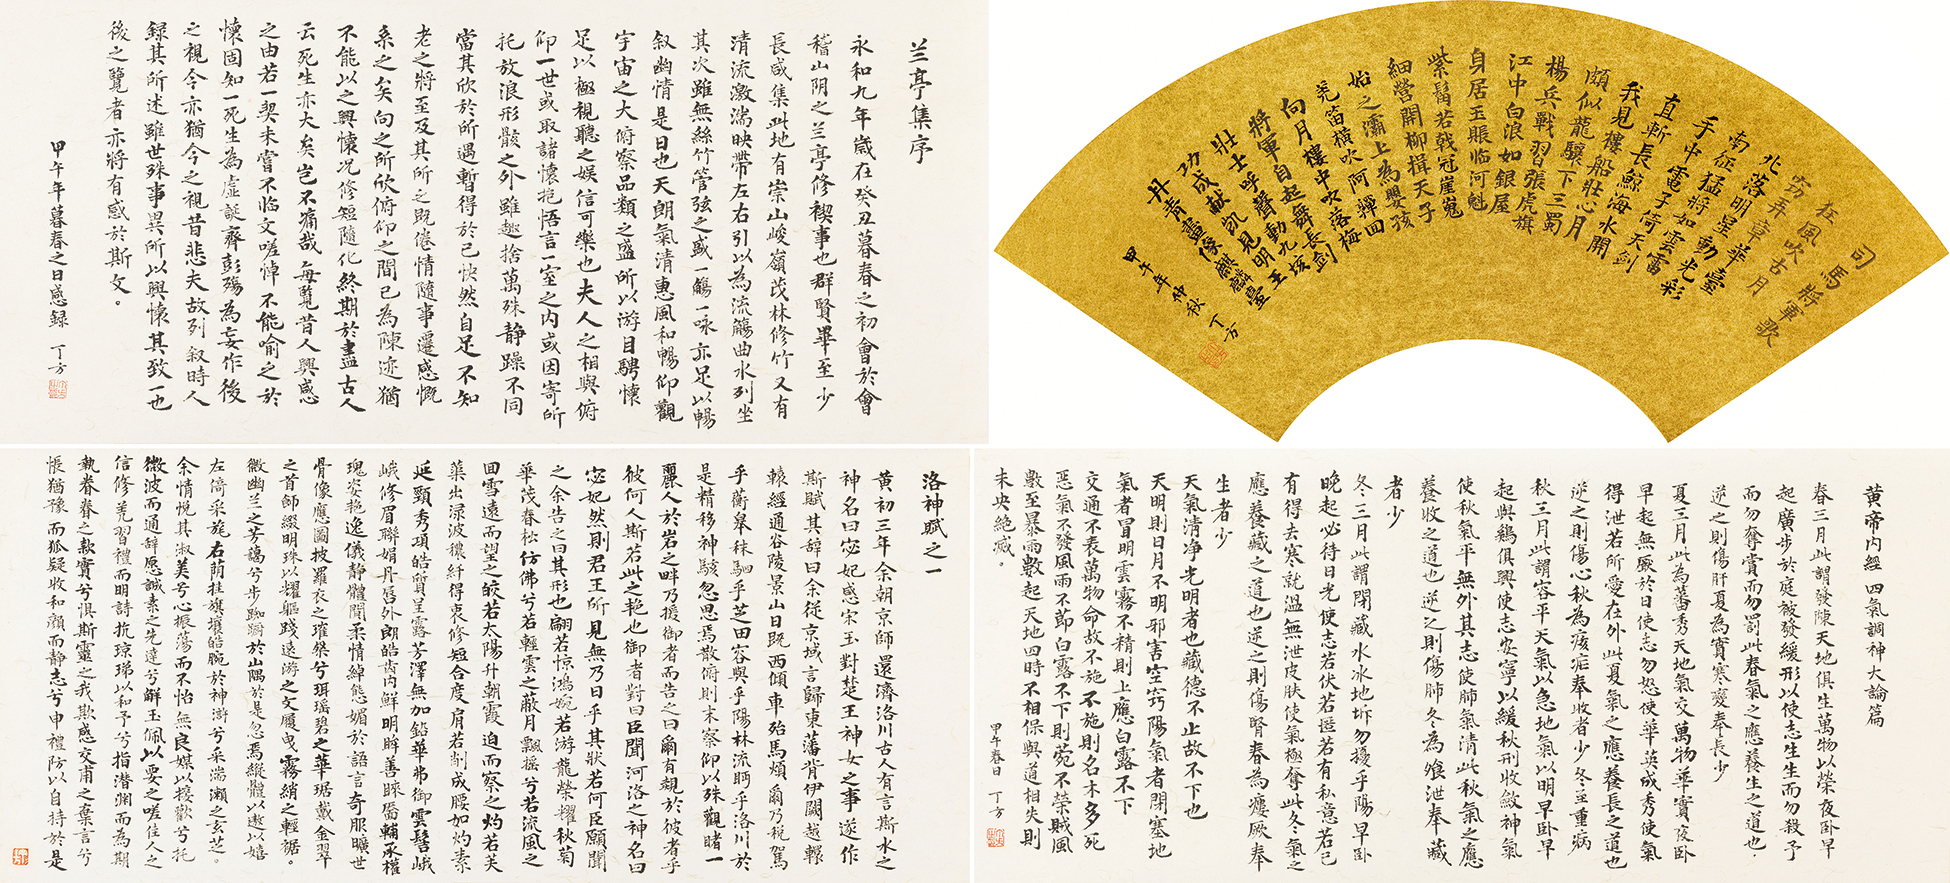 兰亭集序
永和九年歲在癸丑暮春之初會於會
稽山阴之兰亭修禊事也群賢畢至少
長咸集此地有崇山峻嶺茂林修竹又有
清流激湍映帶左右引以為流觴曲水列坐
其次雖無絲竹管弦之盛一觴一咏亦足以暢
叙幽情是日也天朗氣清惠風和暢仰觀
宇宙之大俯察品類之盛所以游目騁懷
足以極視聽之娱信可樂也夫人之相與俯
仰一世或取諸懷抱悟言一室之内或因寄所
托放浪形骸之外雖趣捨萬殊静躁不同
當其欣於所遇暫得於己快然自足不知
老之將至及其所之既倦情隨事遷感慨
系之矣向之所欣俯仰之間已為陳迹猶
不能以之興懷况修短隨化終期於盡古人
云死生亦大矣岂不痛哉每覽昔人興感
之由若一契未嘗不临文嗟悼不能喻之於
懷固知一死生為虚誕齊彭殤為妄作後
之視今亦猶今之視昔悲夫故列叙時人
録其所述雖世殊事異所以興懷其致一也
後之覽者亦將有感於斯文。
甲午年暮春之日感録 丁方
司馬將軍歌
狂風吹古月
窃弄章華臺
北落明星動光彩
南征猛將如雲雷
手中電子倚天剑
直斬長鯨海水開
我見樓船壯心月
頗似龍驤下三蜀
楊兵戰習張虎旗
江中白浪如銀屋
身居玉賬临河魁
紫髯若戟冠崖嵬
細营開柳揖天子
始之灞上為嬰孩
羌笛横吹阿嚲回
向月樓中吹落梅
將軍自起舞長剑
壯士呼聲動九垓
功成献凯見明王
丹青畫像麒麟臺
甲午年仲秋 丁方
洛神賦之一
黄初三年余朝京師還濟洛川古人有言斯水之
神名曰宓妃感宋玉對楚王神女之事遂作
斯賦其辞曰余從京域言歸東藩背伊闕越轘
轅經通谷陵景山日既西傾車殆馬煩爾乃税駕
乎蘅皋秣駟乎芝田容與乎陽林流眄乎洛川於
是精移神駭忽焉思散俯則未察仰以殊觀睹一
麗人於岩之畔乃援御者而告之曰爾有覿於彼者乎
彼何人斯若此之艳也御者對曰臣聞河洛之神名曰
宓妃然則君王所見無乃日乎其狀若何臣願聞
之余告之曰其形也翩若惊鴻婉若游龍榮耀秋菊
華茂春松仿佛兮若輕雲之蔽月飄摇兮若流風之
回雪遠而望之皎若太陽升朝霞迫而察之灼若芙
蕖出渌波襛纤得衷修短合度肩若削成腰如灼素
延頸秀項皓質呈露芳澤無加鉛華弗御雲髻峨
峨修眉聯娟丹唇外朗皓齿内鮮明眸善睐靨輔承權
瑰姿艳逸儀静體閒柔情綽態媚於語言奇服曠世
骨像應圖披羅衣之璀粲兮珥瑶碧之華琚戴金翠
之首飾綴明珠以耀軀踐遠游之文履曳霧绡之輕裾。
微幽兰之芳藹兮步踟蹰於山隅於是忽焉縱體以遨以嬉
左倚采旄右荫桂旗攘皓腕於神滸兮采湍瀨之玄芝。
余情悦其淑美兮心振蕩而不怡無良媒以接歡兮托
微波而通辞愿誠素之先達兮解玉佩以要之嗟佳人之
信修羌習禮而明詩抗琼珶以和予兮指潜渊而為期
執眷眷之款實兮惧斯靈之我欺感交甫之棄言兮
悵猶豫而狐疑收和顏而静志兮申禮防以自持於是
黄帝内經 四氣調神大論篇
春三月此謂發陳天地俱生萬物以榮夜卧早
起廣步於庭被發緩形以使志生生而勿殺予
而勿奪賞而勿罰此春氣之應養生之道也.
逆之則傷肝夏為實寒變奉長少
夏三月此為蕃秀天地氣交萬物華實夜卧
早起無厭於日使志勿怒使華英成秀使氣
得泄若所愛在外此夏氣之應養長之道也
逆之則傷心秋為痎疟奉收者少冬至重病
秋三月此謂容平天氣以急地氣以明早卧早
起與鷄俱興使志安寧以緩秋刑收斂神氣
使秋氣平無外其志使肺氣清此秋氣之應
養收之道也逆之則傷肺冬為飧泄奉藏
者少
冬三月此謂閉藏水冰地坼勿擾乎陽早卧
晚起必待日光使志若伏若匿若有私意若已
有得去寒就温無泄皮肤使氣極奪此冬氣之
應養藏之道也逆之則傷腎春為痿厥奉
生者少
天氣清净光明者也藏德不止故不下也
天明則日月不明邪害空窍陽氣者閉塞地
氣者冒明雲霧不精則上應白露不下
交通不表萬物命故不施不施則名木多死
恶氣不發風雨不節白露不下則菀不榮賊風
數至暴雨數起天地四時不相保與道相失則
未央絶滅。
甲午春日 丁方